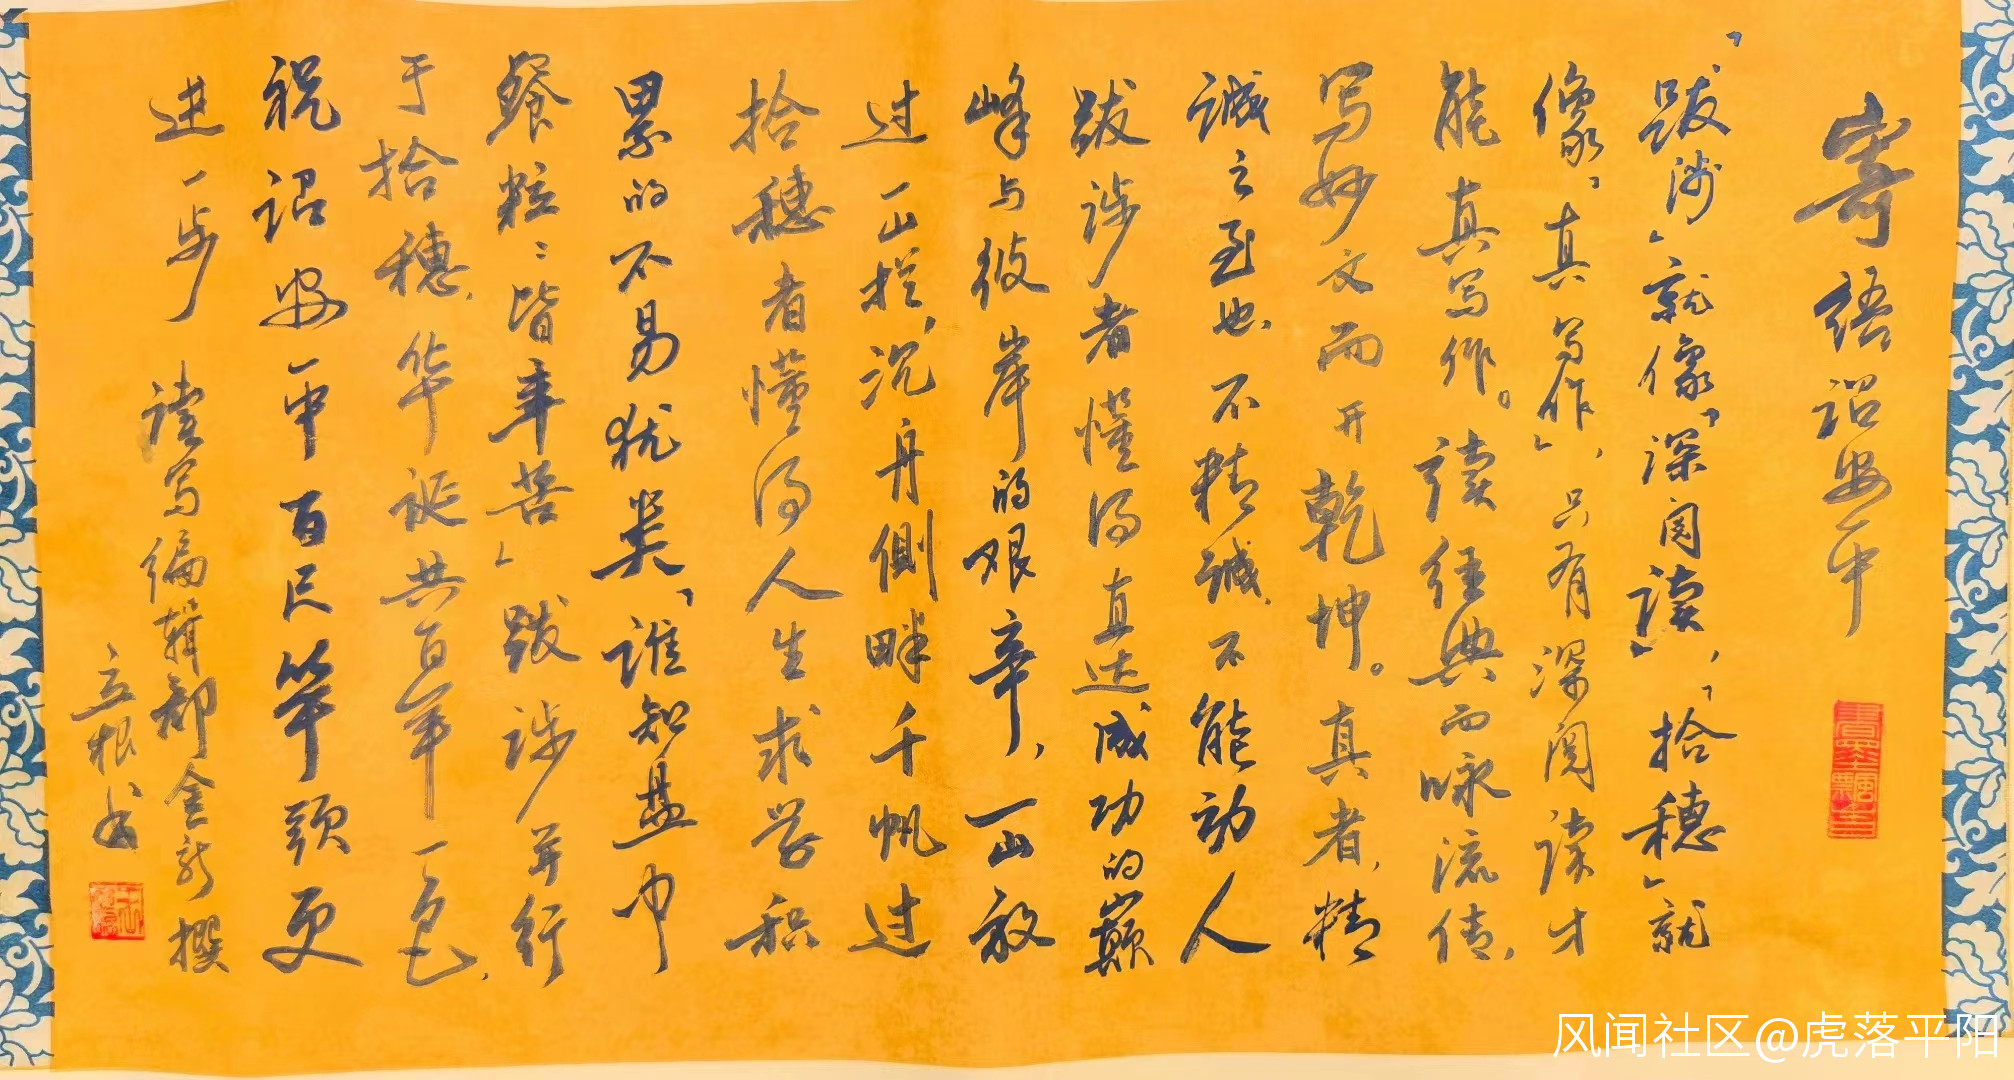 寄语诏安一中
「跋涉」就像「深阅读」，「拾穗」就
像「真写作」，只有深阅读才
能真写作。读经典而咏流传，
写妙文而开乾坤。真者，精
诚之至也，不精诚，不能动人
跋涉者懂得直达成功的巅
峰与彼岸的艰辛，一山放
过一山拦，沉舟侧畔千帆过
拾穗者懂得人生求学积
累的不易犹类「谁知盘中
餐粒粒皆辛苦」跋涉并行
于拾穗，华诞共百年一色，
祝诏安一中百尺竿头更
进一步 读写编辑部金新撰
立根书
风闻社区@虎落平阳